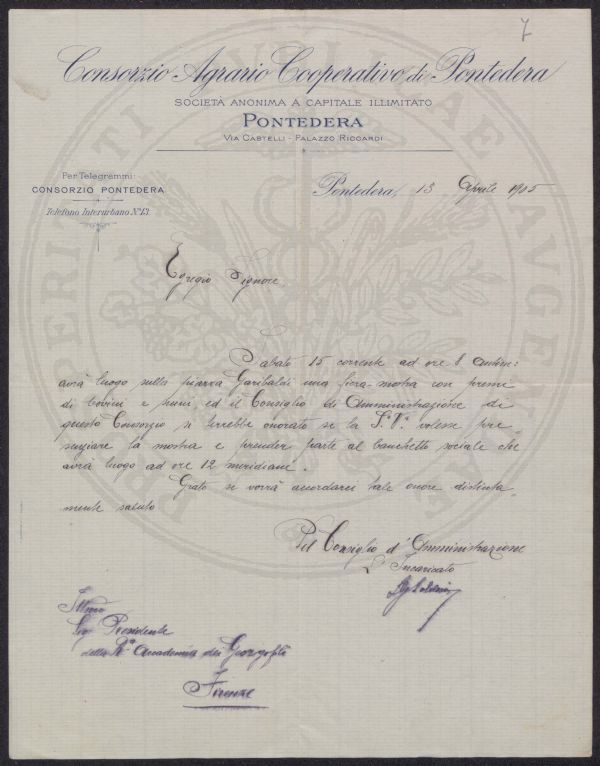 7
Consorzio Agrario Cooperativo di Pontedera
SOCIETÀ ANONIMA A CAPITALE ILLIMITATO
PONTEDERA
VIA CASTELLI - PALAZZO RICCARDI
Per Telegrammi:
CONSORZIO PONTEDERA
Telefono Interurbano N° 13.
Pontedera, 13 Aprile 1905
Egregio Signore,
Sabato 15 corrente ad ore 8 antim:
avrà luogo sulla piazza Garibaldi una fiera-mostra con premi
di bovini e suini, ed il Consiglio di Amministrazione di
questo Consorzio si terrebbe onorato se la S.V. volesse pre
senziare la mostra e prender parte al banchetto sociale che
avrà luogo ad ore 12 meridiane.
Grato se vorrà accordarci tale onore distinta
mente saluto
Pel Consiglio d'Amministrazione
L'Incaricato
Illmo
Sig. Presidente
della Ra Accademia dei Georgofili
Firenze